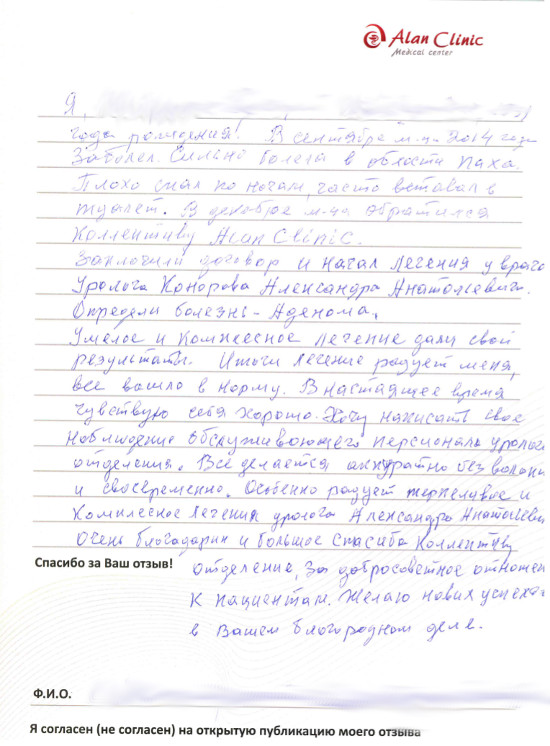 Alan Clinic
Medical center
Я,
года рождения! В сентябре м-це 2014 года
Заболел. Сильно болела в области паха.
Плохо спал по ночам, часто вставал в
туалет. В декабре м-це обратился
Коллективу Alan Clinic.
Заключили договор и начал лечения у врача
Уролога Конорова Александра Анатольевича.
Определи болезнь - Аденома.
Умелое и комлесное лечение дали свой
результаты. Итоги лечение радует меня,
все вошло в норму. В настоящее время
чувствую себя хорошо. Хочу написать свое
наблюдение обслуживающего персонала уролог
отделения. Все делается аккуратно без
и своевременно. Особенно радует терпеливое и
комплесное лечения уролога Александра Анатольевич
Очень благодарин и большое спасибо Коллективу
Спасибо за Ваш отзыв!
отделение, за добросоветное отношен
к пациентам. Желаю новых успеха
в Вашем благородном деле.
Ф.И.О.
Я согласен (не согласен) на открытую публикацию моего отзыва